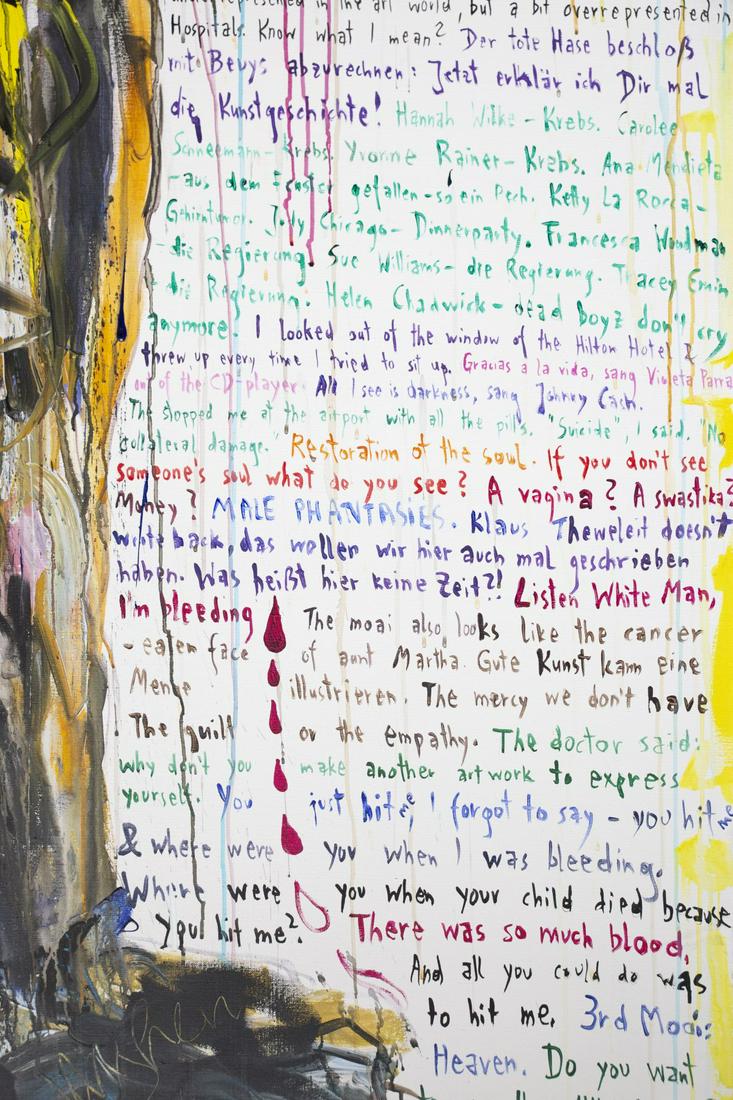 underrepresented in the art world, but a bit overrepresented in
Hospitals. Know what I mean? Der tote Hase beschloß
mit Beuys abzurechnen: Jetzt erklär ich Dir mal
die Kunstgeschichte! Hannah Wilke - Krebs. Carolee
Schneemann - Krebs. Yvonne Rainer - Krebs. Ana Mendieta
- aus dem Fenster gefallen - so ein Pech. Ketty La Rocca -
Gehirntumor. Judy Chicago - Dinnerparty. Francesca Woodman
- die Regierung. Sue Williams - die Regierung. Tracey Emin
- die Regierung. Helen Chadwick - dead boyz don't cry
anymore. I looked out of the window of the Hilton Hotel &
threw up every time I tried to sit up. Gracias a la vida, sang Violeta Parra
out of the CD-player. All I see is darkness, sang Johnny Cash.
The stopped me at the airport with all the pill's. "Suicide", I said. "No
collateral damage." Restoration of the soul. If you don't see
someone's soul what do you see? A vagina? A swastika?
Money? MALE PHANTASIES. Klaus Theweleit doesn't
wrote back, das wollen wir hier auch mal geschrieben
haben. Was heißt hier keine Zeit?! Listen White Man,
I'm bleeding The moai also looks like the cancer
- eaten face of aunt Martha. Gute Kunst kann eine
Menge illustrieren. The mercy we don't have
The guilt or the empathy. The doctor said:
why don't you make another artwork to express
yourself. You just hit me, I forgot to say - you hit me
& where were you when I was bleeding.
Where were you when your child died because
You hit me². There was so much blood,
And all you could do was
to hit me. 3rd Moai:
Heaven. Do you want